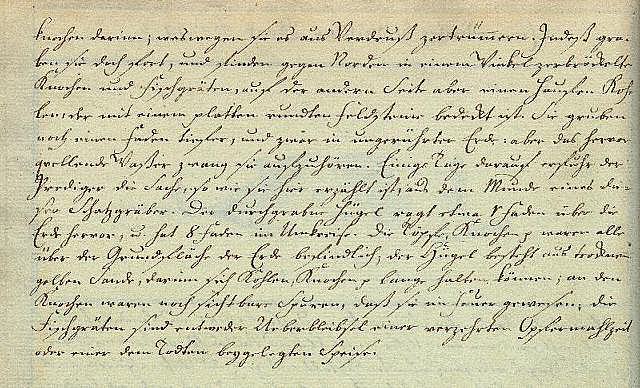 Knochen darinn; weswegen sie es aus Verdruß zertrümmern. Indeß gra-
ben sie doch fort, und finden gegen Norden in einem Winkel zerbröckelte
Knochen und Fischgräten, auf der andern Seite aber einen Haufen Koh-
len, der mit einem platten runden Feldsteine bedeckt ist. Sie gruben
noch einen Faden tiefer, und zwar in ungerührter Erde: aber das hervor-
quellende Wasser zwang sie aufzuhören. Einige Tage darauf erfuhr der
Prediger die Sache, so wie sie hier erzählt ist, aus dem Munde eines die-
ser Schatzgräber. Der durchgrabne Hügel ragt etwa Faden über die
Erde hervor, u. hat 8 Faden im Umkreise. Die Töpfe, Knochen p waren alle
über der Grundfläche der Erde befindlich, der Hügel besteht aus trocknem
gelben Sande, darinn sich Kohlen, Knochen p lange halten können; an den
Knochen waren noch sichtbare Spuren, daß sie im Feuer gewesen; die
Fischgräten sind entweder Ueberbleibsel einer verzehrten Opfermahlzeit
oder einer dem Todten beygelegten Speise.